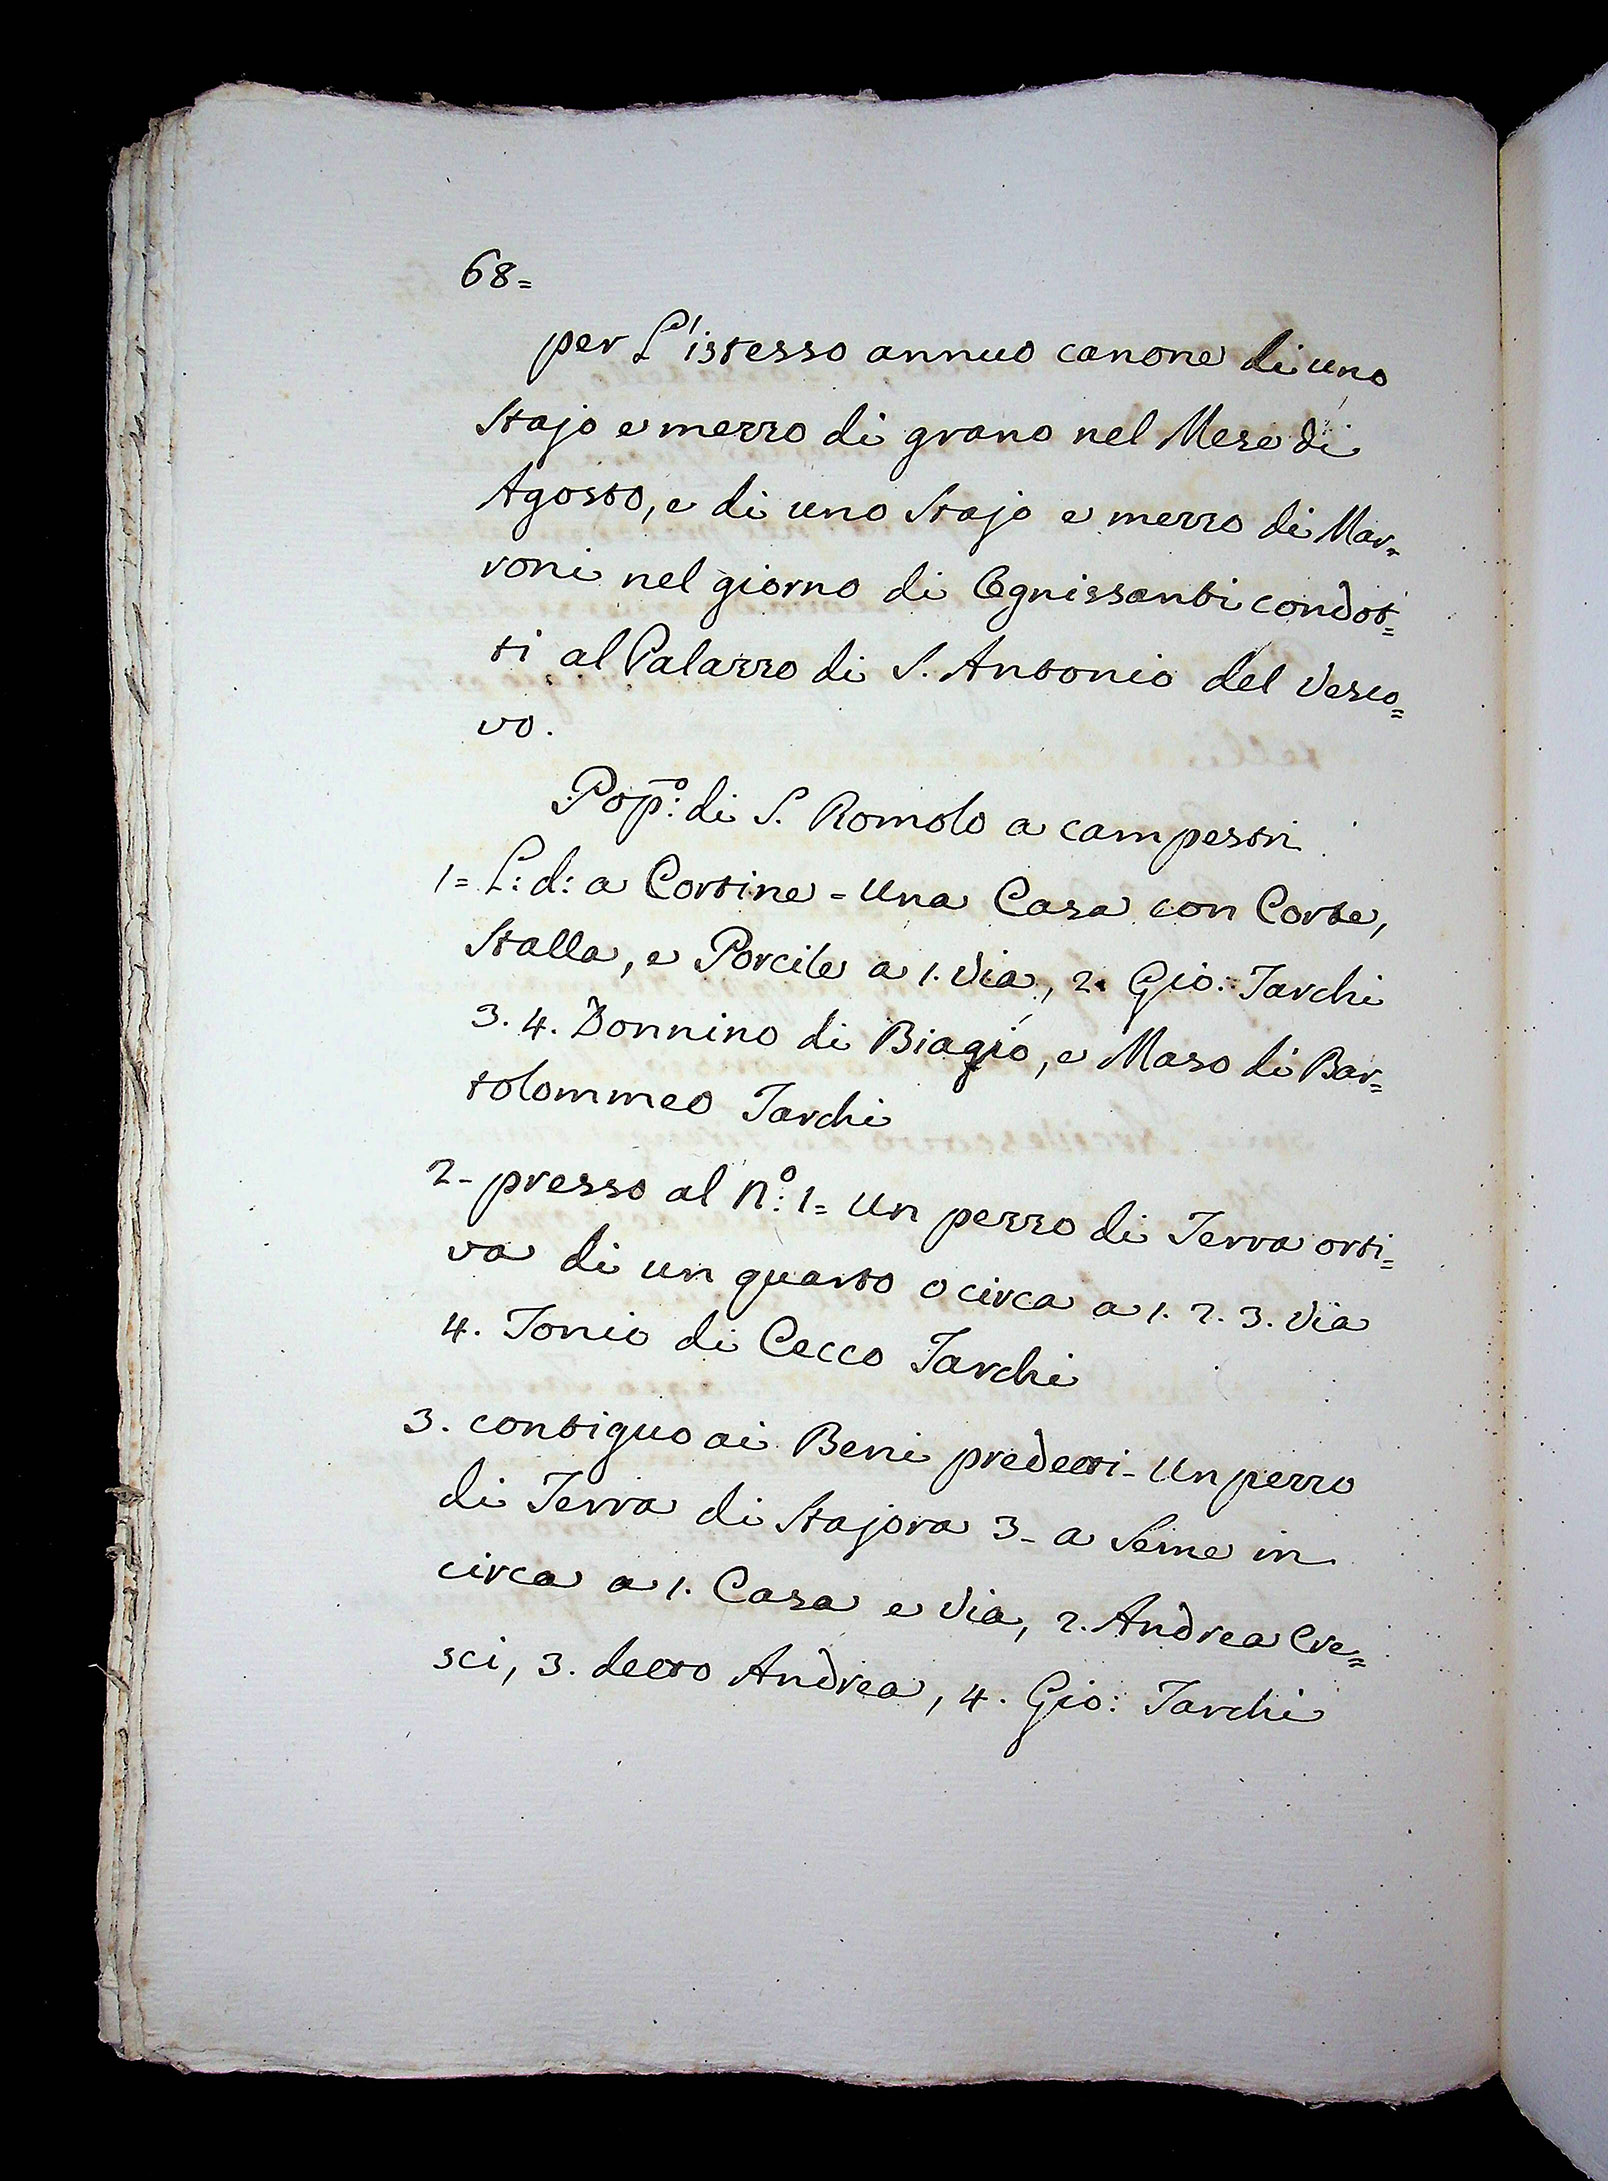 68=
per L'istesso annuo canone di uno
Stajo e mezzo di grano nel Mese di
Agosto, e di uno Stajo e mezzo di Mar=
roni nel giorno di Ognissanti condot=
ti al Palazzo di S. Antonio del Vesco=
vo.
Pop.º: di S. Romolo a campestri
1= L: d: a Cortine = Una Casa con Corte,
Stalla, e Porcile a 1. Via, 2. Gio: Tarchi
3. 4. Donnino di Biagio, e Maso di Bar=
tolommeo Tarchi
2- presso al Nº: 1= Un pezzo di Terra orti=
va di un quarto o circa a 1. 2. 3. Via
4. Tonio di Cecco Tarchi
3. contiguo ai Beni predetti - Un pezzo
di Terra di Stajora 3- a Seme in
circa a 1. Casa e Via, 2. Andrea Cre=
sci, 3. detto Andrea, 4. Gio: Tarchi